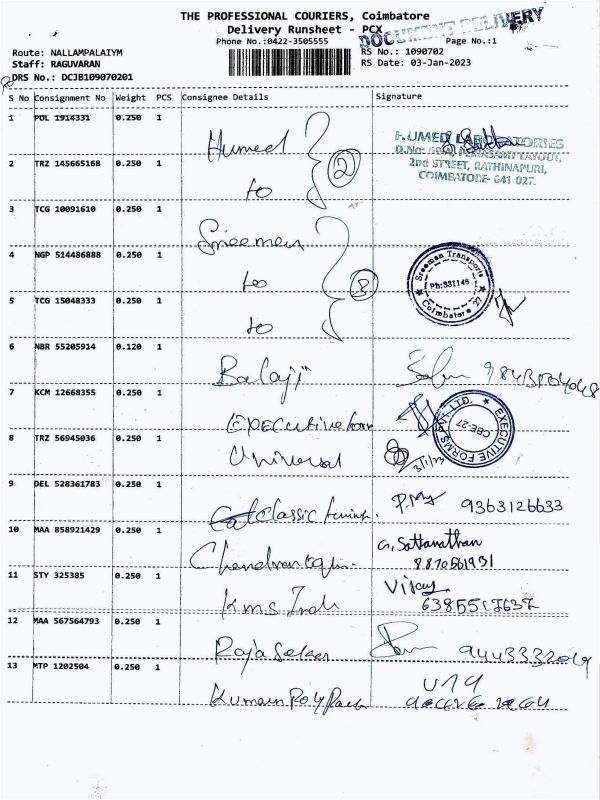 THE PROFESSIONAL COURIERS, Coimbatore
Delivery Runsheet - PCX
DOCUMENT DELIVERY
Phone No.:0422-3505555
Page No.:1
Route: NALLAMPALAIYM
RS No.: 1090702
Staff: RAGUVARAN
RS Date: 03-Jan-2023
DRS No.: DCJB109070201
S No Consignment No Weight PCS Consignee Details Signature
1 POL 1914331 0.250 1 Humed
HUMED LABORATORIES
2nd STREET, RATHINAPURI,
COIMBATORE- 641 027.
2 TRZ 145665168 0.250 1 to
2
3 TCG 10091610 0.250 1 Sreeman
4 NGP 514486888 0.250 1 to
3
Sreeman Transports
Ph:331145
Coimbatore 27
5 TCG 15048333 0.250 1 to
6 NBR 55205914 0.120 1 Balaji
7 KCM 12668355 0.250 1 Executive form
EXECUTIVE FORMS PVT. LTD.
CBE-27
8 TRZ 56945036 0.250 1 Universal
3/1/23
9 DEL 528361783 0.250 1 classic
9363126633
10 MAA 858921429 0.250 1
G. Sattanathan
8870561931
11 STY 325385 0.250 1 Kms Indu
Vijay
12 MAA 567564793 0.250 1 Rajasekar
13 MTP 1202504 0.250 1 Kumaran Poly Pack